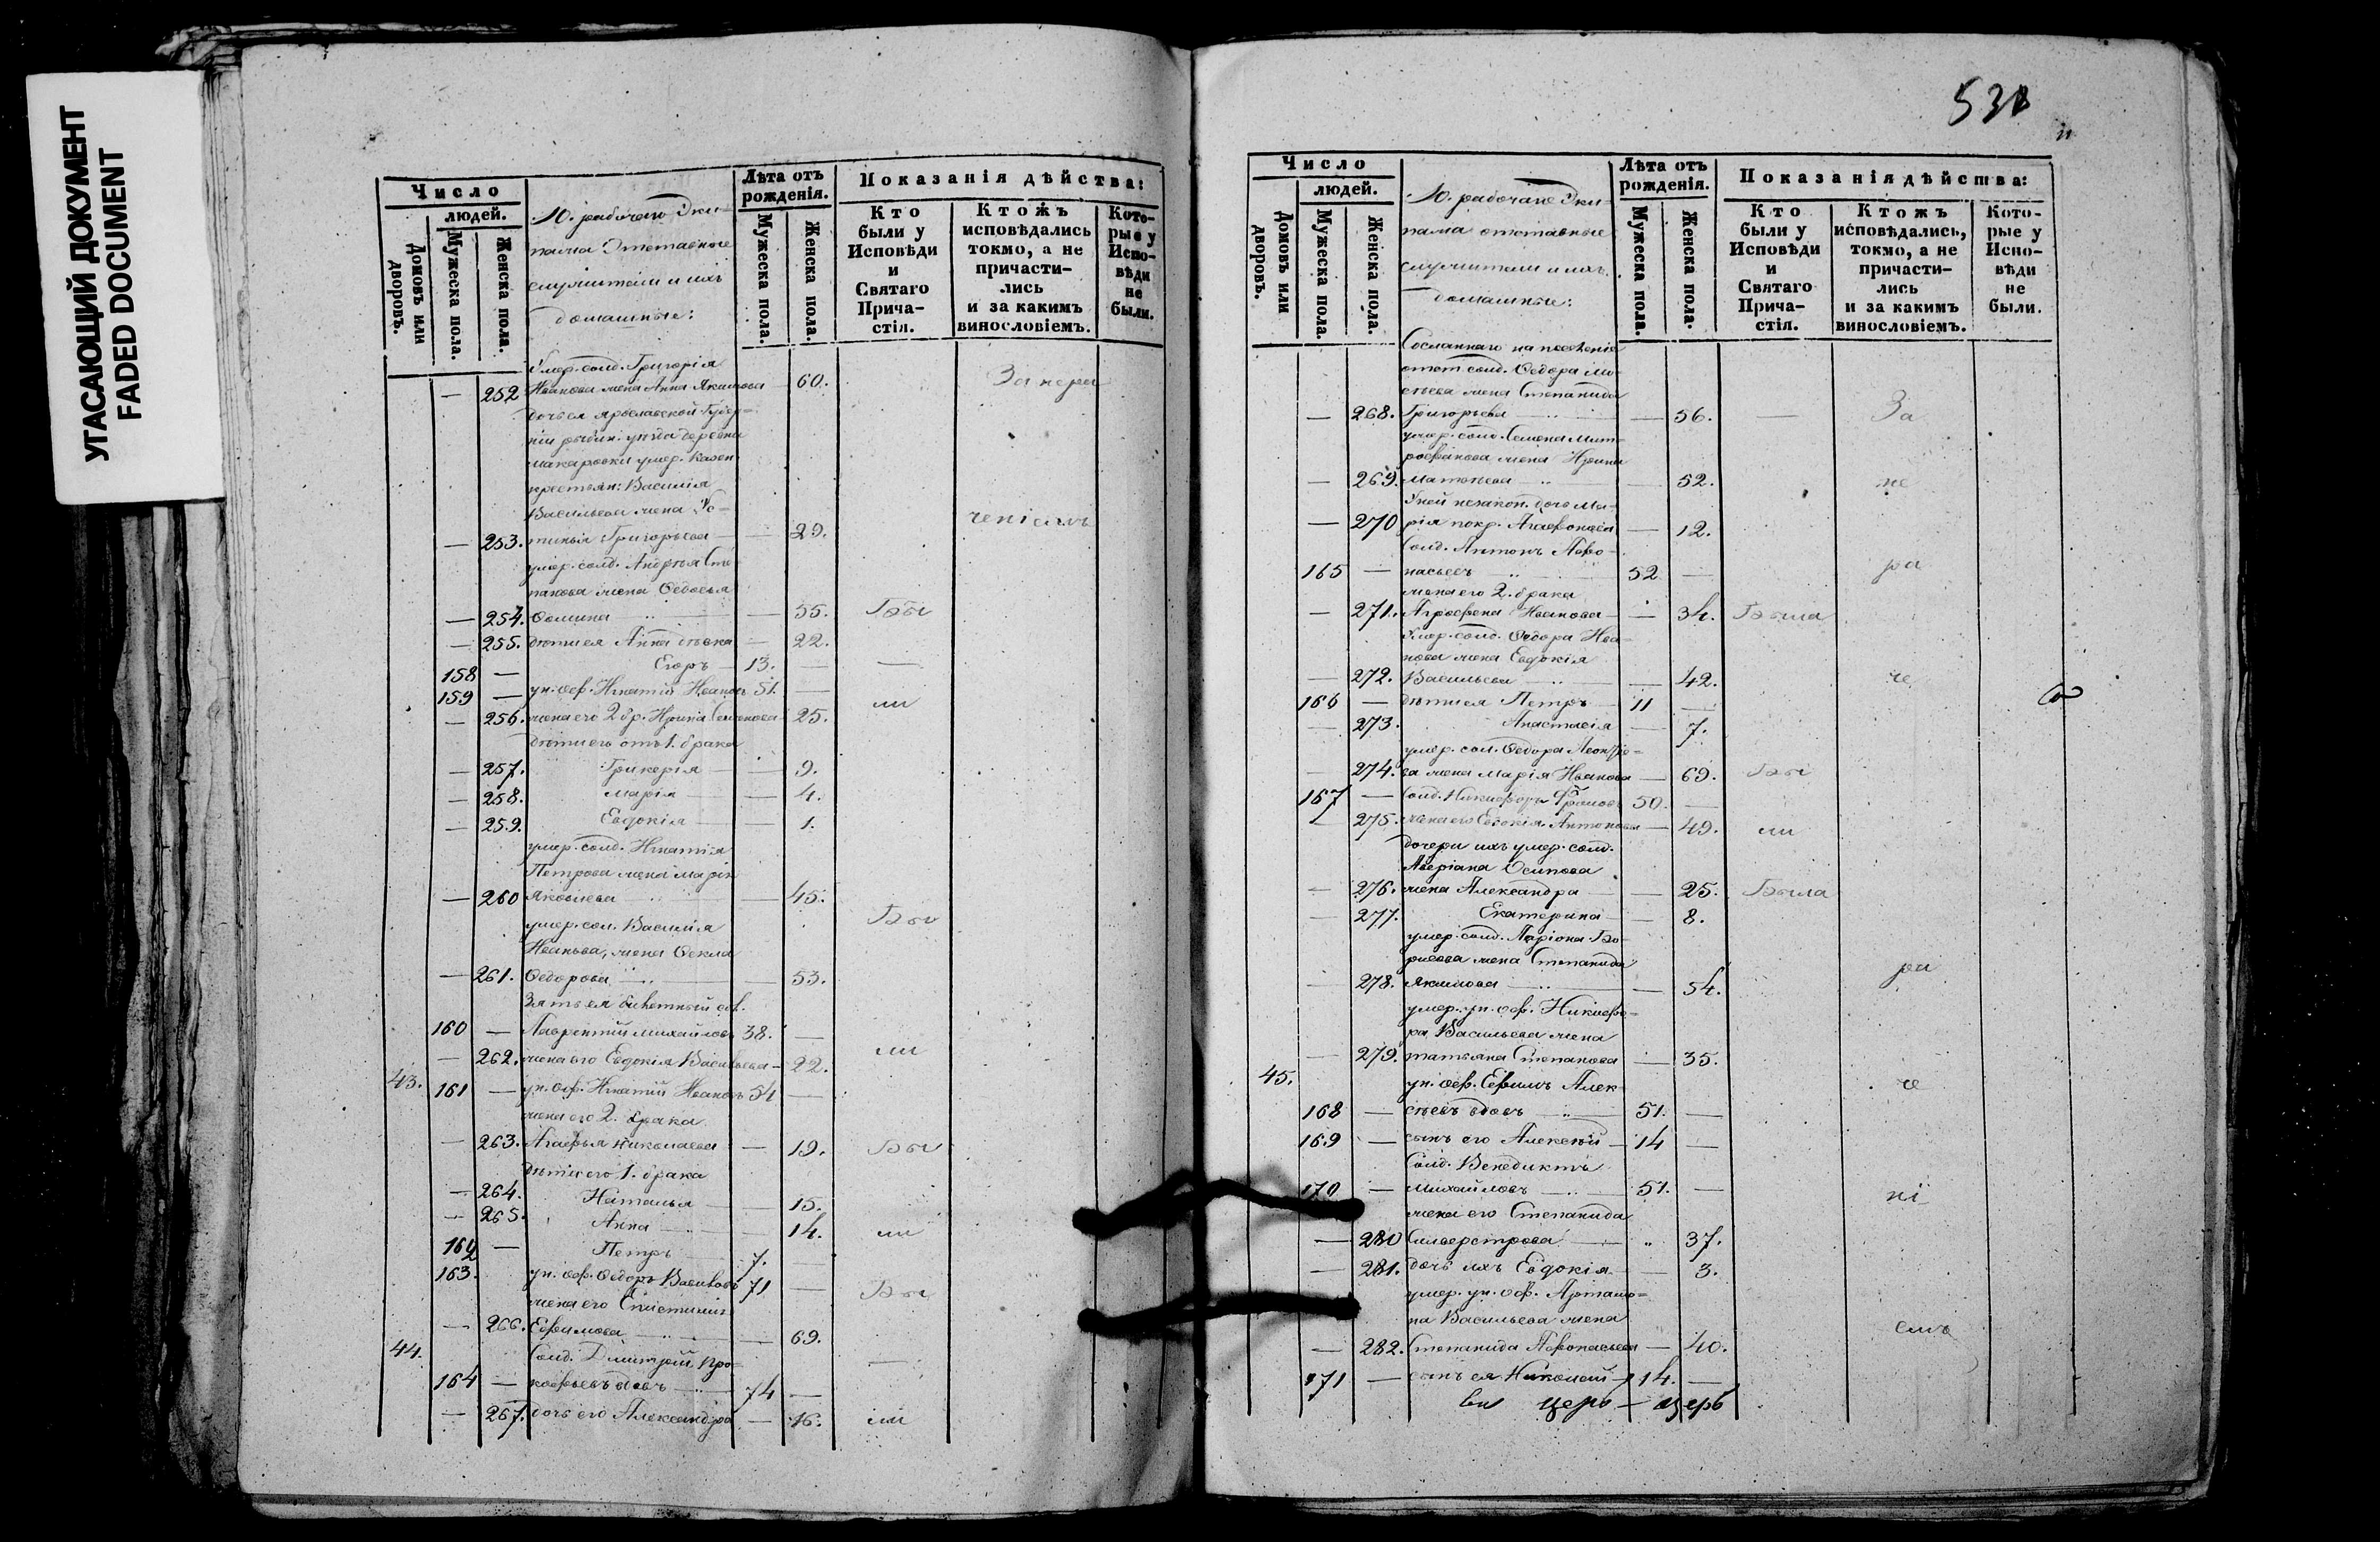 УГАСАЮЩИЙ ДОКУМЕНТ
FADED DOCUMENT
Число
людей.
Домовъ или дворовъ.
Мужеска пола.
Женска пола.
10. рабочаго Эки-
пажа Отставные
служители и ихъ
домашные:
Лѣта отъ рожденія.
Мужеска пола.
Женска пола.
Показанія дѣйства:
Кто были у Исповѣди и Святаго Прича-стія.
Ктожъ исповѣдались токмо, а не причасти-лись и за какимъ винословіемъ.
Кото-рые у Испо-вѣди не были.
Умер. солд. Григорія
— 252 Иванова жена Анна Якимова — 60. За нера
дочь ея Ярославской Губер-
ніи рыбин. уѣзда деревни
макаровки умер. казен.
крестьян: Василія
Васильева жена
— 253. Григорьева — 29. ченіемъ
умер. солд. Андрея Сте-
панова жена Ѳедосья
— 254. Ѳомина — 55. Бы
— 255. дѣти ея Анна дѣвка — 22.
158 — Егоръ — 13. —
159 — ун. оф. Игнатій Ивановъ 51. — ли
— 256. жена его 2 бр. Ирина Семенова — 25.
дѣти его отъ 1. брака
— 257. Гликерія — 9.
— 258. Марія — 4.
— 259. Евдокія — 1.
умер. солд. Игнатія
Петрова жена Марія
— 260 Яковлева — 45. Бы
умер. сол. Василія
Иванова, жена Ѳекла
— 261. Ѳедорова — 53.
Зять ея билетный
160 — Лаврентій Михайловъ 38. —
— 262. жена его Евдокія Васильева — 22. ли
43. 161 — ун. оф. Игнатій Ивановъ 54 —
жена его 2. брака
— 263. Агафья Николаева — 19. Бы
дѣти его 1. брака
— 264. Наталья — 15.
— 265. Анна — 14. ли
162 — Петръ 7. —
163. ун. оф. Ѳедоръ 71 — Бы
жена его
— 266. Ефимова — 69.
44. Солд. Дмитрій Про-
164 — кофьевъ вдовъ — 74 —
— 267. дочь его Александра — 16. ли
Число
людей.
Домовъ или дворовъ.
Мужеска пола.
Женска пола.
10. рабочаго Эки-
пажа отставные
служители и ихъ
домашные:
Лѣта отъ рожденія.
Мужеска пола.
Женска пола.
Показанія дѣйства:
Кто были у Исповѣди и Святаго Прича-стія.
Ктожъ исповѣдались, токмо, а не причасти-лись и за какимъ винословіемъ.
Кото-рые у Испо-вѣди не были.
Сосланнаго на поселеніе
отст. солд. Ѳедора
жена Степанида
— 268. Григорьева — 56. — За
умер. солд. Семена Мит-
рофанова жена Ирина
— 269. Матвѣева — 52. не
У ней незакон. дочь Ма-
— 270 рія покр. Агафонова — 12.
Солд. Антонъ Афо-
165 — насьевъ 52 — ра
жена его 2. брака
— 271. Аграфена Иванова — 34. Была
Умер. солд. Ѳедора Ива-
нова жена Евдокія
— 272. Васильева — 42. че
166 — дѣти ея Петръ 11 —
— 273. Анастасія — 7.
умер. сол. Ѳедора Леонтье-
— 274. ва жена Марія Иванова — 69. Бы
167 — Солд. Никифоръ 50. —
— 275. жена его Евдокія Антонова — 49. ли
дочери ихъ умер. солд.
Аверіана Осипова
— 276. жена Александра — 25. Была
— 277. Екатерина — 8.
умер. солд. Ларіона Бо-
рисова жена Степанида
— 278. Якимова — 54. ра
умер. ун. оф. Никифо-
ра Васильева жена
— 279. татьяна Степанова — 35.
45. ун. оф. Ефимъ Алек- че
168 — сѣевъ вдовъ — 51. —
169 — сынъ его Алексѣй — 14 —
Солд. Венедиктъ
170 — Михайловъ — 51. — ні
жена его Степанида
— 280 Сильверстрова „ 37.
— 281. дочь ихъ Евдокія — 3.
умер. ун. оф. Артамо-
на Васильева жена
— 282. Степанида Афонасьева — 40. емъ
171 — сынъ ея Николай 14. —